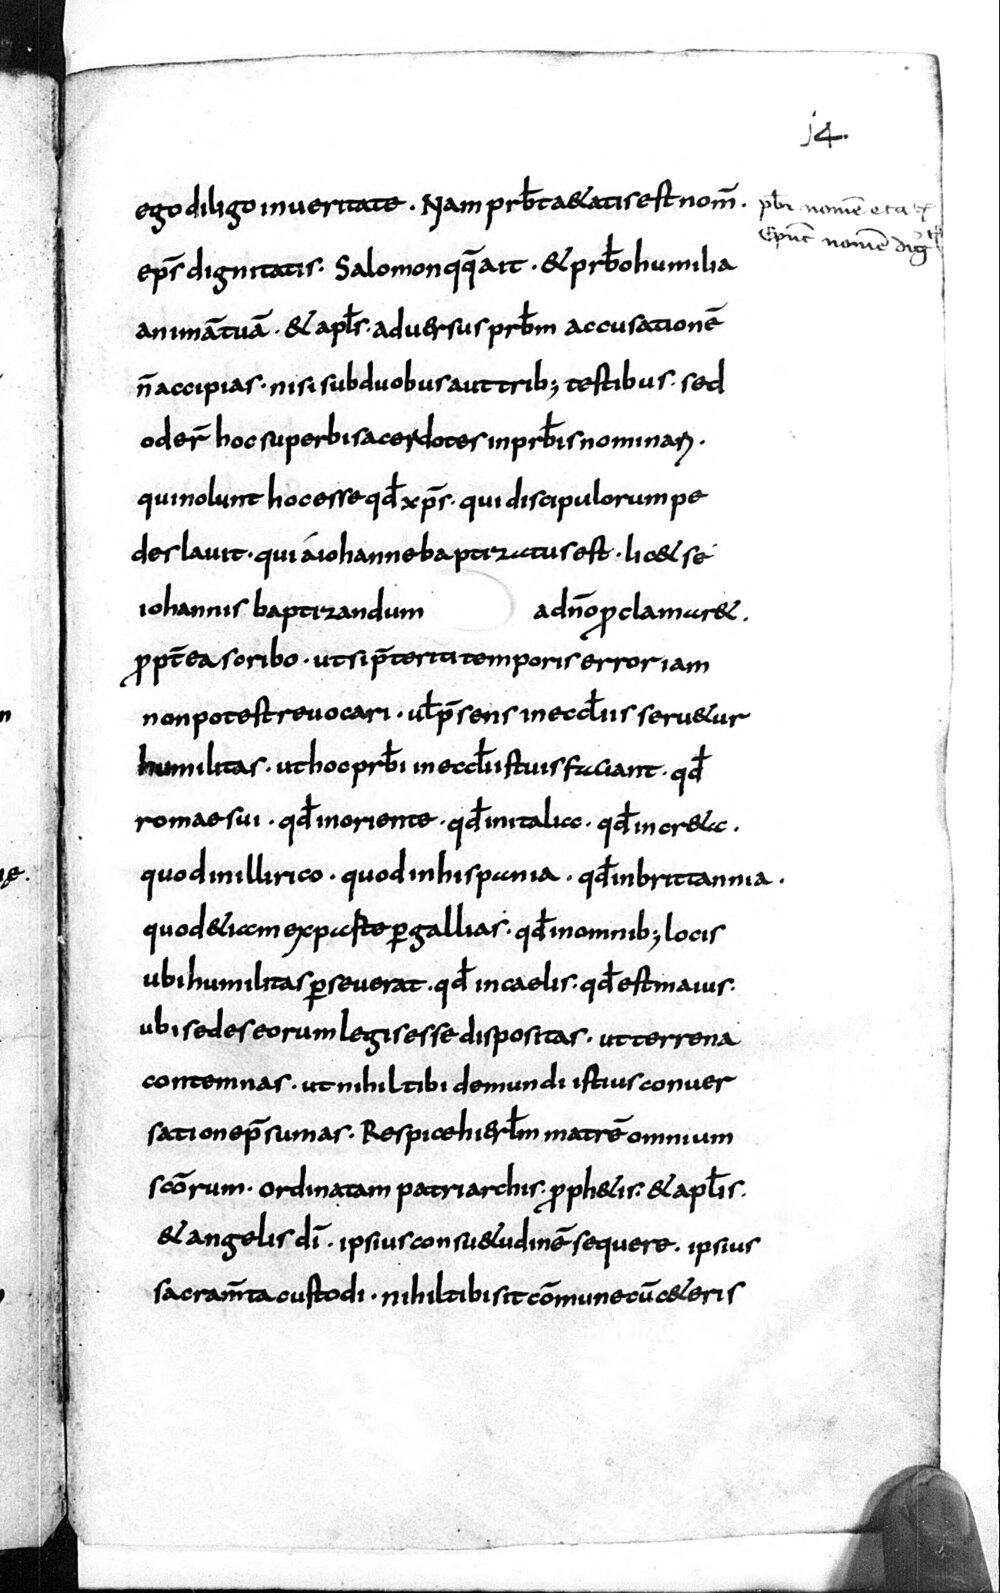 14.
ego diligo in ueritate . Nam prƀt a&atis est nom̄ .
pƀri nomē etatꝭ
ep̄s dignitatis . Salomon qq̄ ait . & prƀo humilia
Epūt nomē dig
animā tuā . & apłs . aduersus prƀm accusationē
n̄ accipias . nisi sub duobus aut trib; testibus . sed
oder̄ hoc superbi sacerdotes in prƀis nominaꝝ .
qui nolunt hoc esse qđ xp̄s . qui discipulorum pe
des lauit . qui a iohanne baptizatus est . lic& se
iohannis baptizandum ad n̄o ꝓclamar& .
ꝓpt̄ea scribo . ut si p̄teriti temporis error iam
non potest reuocari . uł p̄sens in eccłiis seru&ur
humilitas . ut hoc prƀi in eccłiis tuis faciant . qđ
romae sui . qđ in oriente . qđ in italia . qđ in cr&a .
quod in illirico . quod in hispania . qđ in brittannia .
quod &iam ex paste ꝑ gallias . qđ in omnib; locis
ubi humilitas ꝑseuerat . qđ in caelis . qđ est maius .
ubi sedes eorum legis esse dispositas . ut terrena
contemnas . ut nihil tibi de mundi istius conuer
satione p̄sumas . Respice hierłm matrē omnium
scōrum . ordinatam patriarchis . ꝓph&is . & apłis .
& angelis dī . ipsius consu&udinē sequere . ipsius
sacram̄ta custodi . nihil tibi sit cōmune cū c&eris